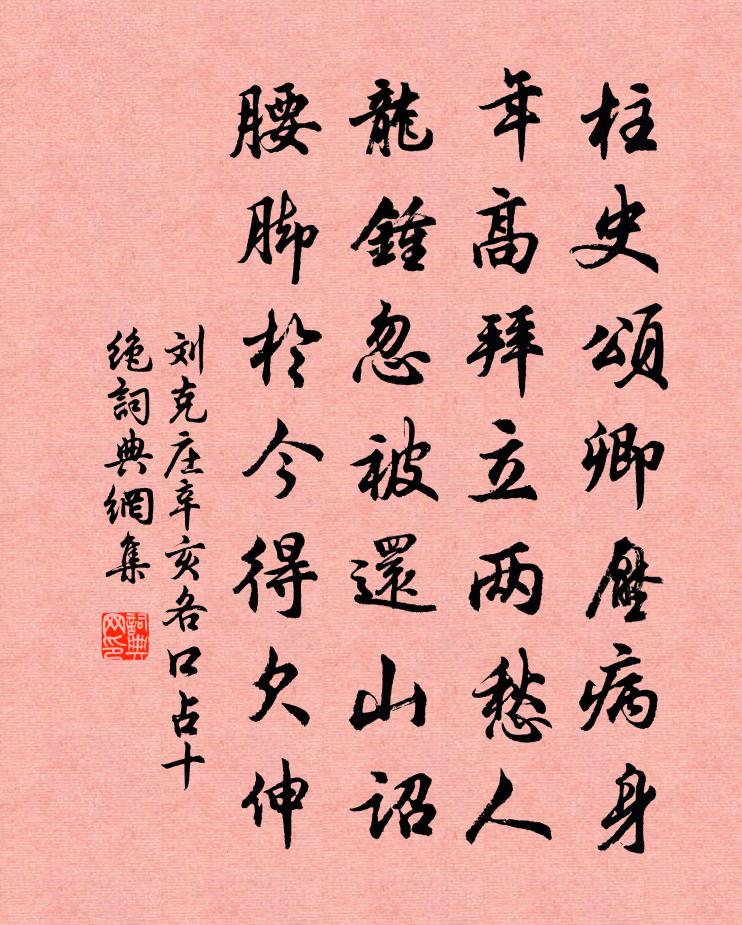 柱史頌卿壓病身
年高拜立两愁人
龍鍾忽被還山詔
腰脚於今得欠伸
刘克庄辛亥各口占十
绝詞典網集
詞典
网印